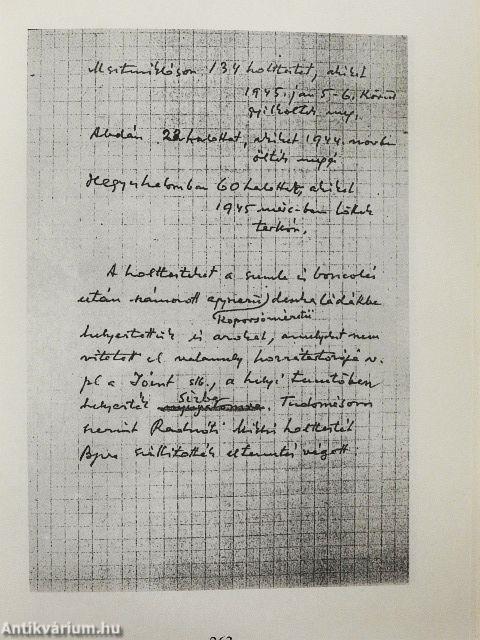 Mosonmiklóson 134 holttestet, akiket
1945. jan 5-6. körül
gyilkoltak meg.
Abdán 22 halottat, akiket 1944. novbr
öltek meg
Hegyeshalomban 60 halottat, akiket
1945 márc-ban lőttek
tarkón.
A holttesteket a szemle és boncolás
után számozott egyszerű deszkaládákba
koporsóméretű
helyeztettük és azokat, amelyeket nem
vitetett el valamely hozzátartozója v.
pl a Joint stb., a helyi temetőben
helyezték sírba. Tudomásom
szerint Radnóti Miklós holttestét
Bpre szállították eltemetés végett.
Antikvárium.hu
263